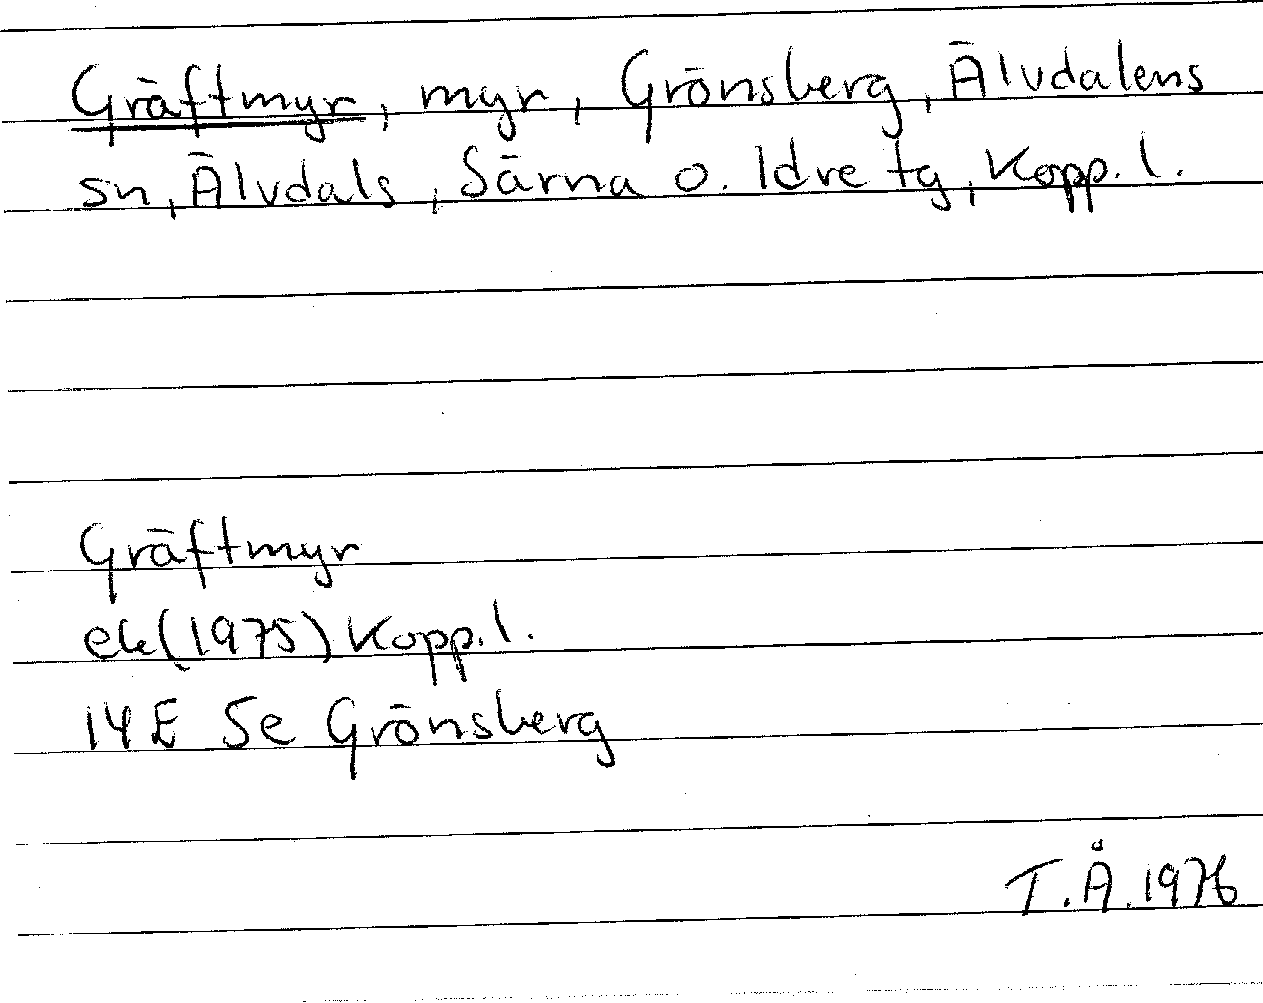 Gräftmyr, myr, Grönsberg, Älvdalens
sn, Älvdals, Särna o. Idre tg, Kopp. l.
Gräftmyr
ek (1975) Kopp. l.
14E 5e Grönsberg
T.Å. 1976